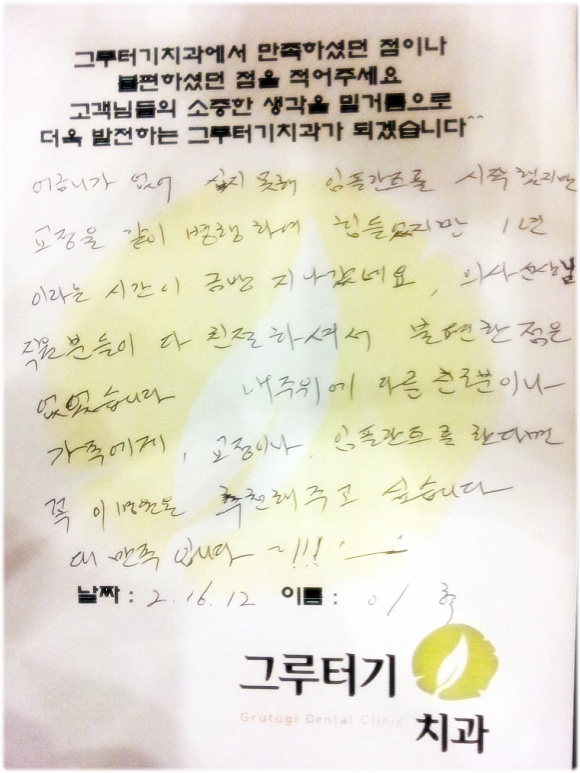 그루터기치과에서 만족하셨던 점이나
불편하셨던 점을 적어주세요
고객님들의 소중한 생각을 밑거름으로
더욱 발전하는 그루터기치과가 되겠습니다^^
어금니가 없어 씹지 못해 임플란트를 시작했지만
교정을 같이 병행하여 힘들었지만 1년
이라는 시간이 금방 지나갔네요, 의사선생님
직원분들이 다 친절하셔서 불편한점은
없었습니다 내주위에 다른 분이나
가족에게, 교정이나, 임플란트를 한다면
꼭 이병원은 추천해주고 싶습니다
대 만족 입니다 ~!!!
날짜 : 2.16.12 이름 : 이
그루터기
Grutugi Dental Clinic
치과